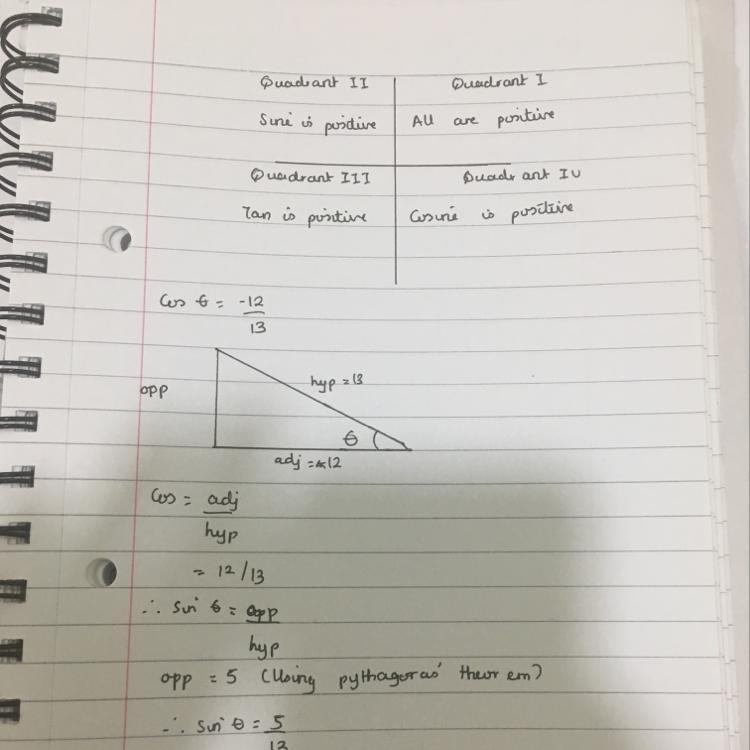 Quadrant II Quadrant I
Sine is positive All are positive
Quadrant III Quadrant IV
Tan is positive Cosine is positive
Cos θ = -12
13
hyp = 13
opp
θ
adj = 12
Cos = adj
hyp
= 12/13
∴ Sin θ = opp
hyp
opp = 5 (Using pythagoras' theorem)
∴ Sin θ = 5
13